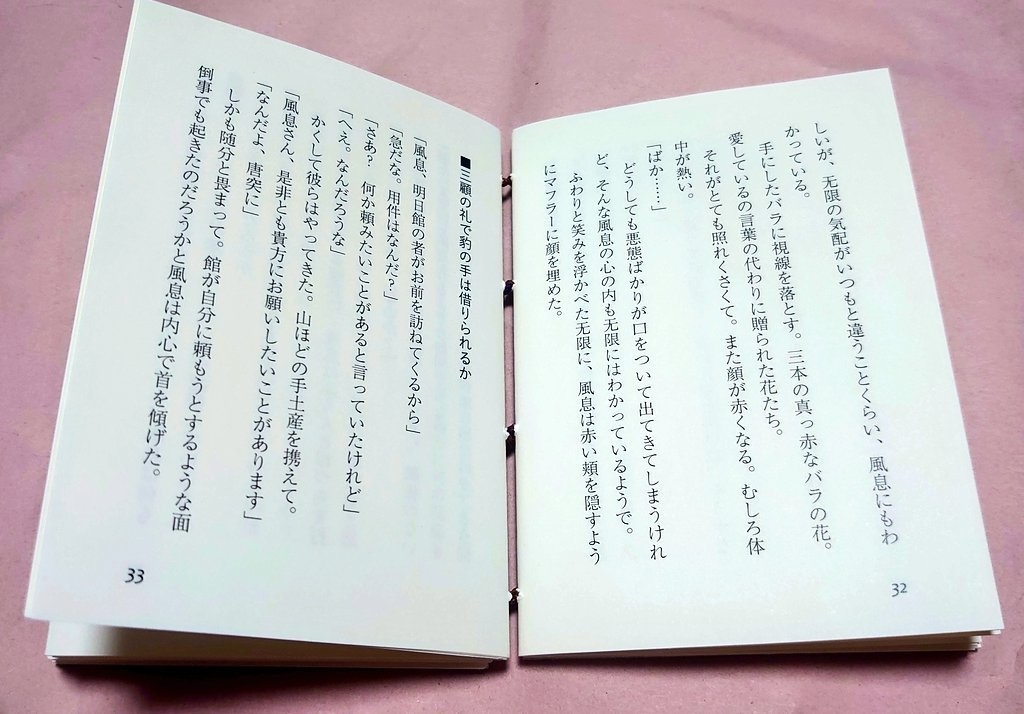 しいが、无限の気配がいつもと違うことくらい、風息にもわ
かっている。
手にしたバラに視線を落とす。三本の真っ赤なバラの花。
愛しているの言葉の代わりに贈られた花たち。
それがとても照れくさくて。また顔が赤くなる。むしろ体
中が熱い。
「ばか……」
どうしても悪態ばかりが口をついて出てきてしまうけれ
ど、そんな風息の心の内も无限にはわかっているようで。
ふわりと笑みを浮かべた无限に、風息は赤い頬を隠すよう
にマフラーに顔を埋めた。
32
■三顧の礼で豹の手は借りられるか
「風息、明日館の者がお前を訪ねてくるから」
「急だな。用件はなんだ?」
「さあ? 何か頼みたいことがあると言っていたけれど」
「へえ。なんだろうな」
かくして彼らはやってきた。山ほどの手土産を携えて。
「風息さん、是非とも貴方にお願いしたいことがあります」
「なんだよ、唐突に」
しかも随分と畏まって。館が自分に頼もうとするような面
倒事でも起きたのだろうかと風息は内心で首を傾げた。
33